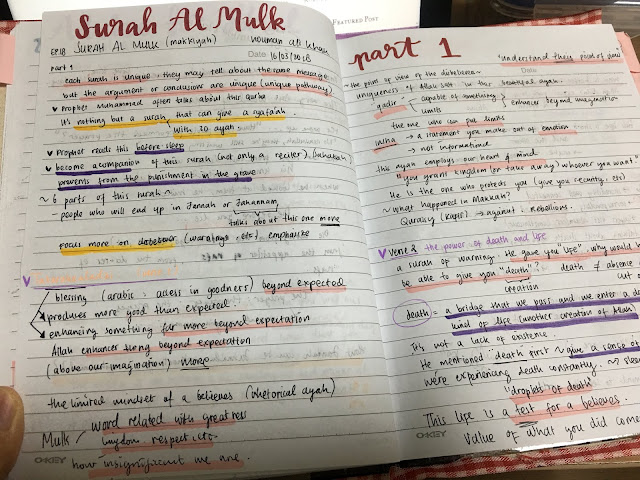 FEATURED POST
Surah Al Mulk
EP1B SURAH AL MULK (makkiyah) nouman ali khan
Part 1
Date 16/03/2018
each surah is unique, they may tell about the same message
but the argument or conclusions are unique (unique pathway)
Prophet Muhammad often talks about this surha
It's nothing but a surah that can give a syafa'ah
with 30 ayah
Prophet reads this before sleep
become acompanion of this surah (not only a reciter) (sahabah)
prevents from the punishment in the grave
~ 6 parts of this surah ~
- people who will end up in Jannah or Jahannam
talks about this one more
Focus more on disbeliever (warnings, etc) emphasize
blessing (arabic: access in goodness) beyond expected
produces more good than expected
enhancing something far more beyond expectation
Allah enhances thing beyond expectation
(above our imagination) more
the limited mindset of a believes (rhetorical ayah)
Mulk / word related with greatness
kingdom, respect etc.
how insignificant we are.
O-KEY
part 1
"understand they point of view
~ the point of view of the disbeliever ~
Date
uniqueness of Allah set in this beautiful ayah.
qadir capable of something enhancer beyond imagination
limits
the one who can put limits
insha → a statement you make out of emotion
→ not informational
this ayah employs our heart & mind
"you grant kingdom (or take away) whoever you want.
He is the one who protects you (give you security, etc)
~ what happened in Makkah?
Quraisy (kafir) → against, rebellions.
Verse 2 the power of death and life
a surah of warning. He gave you "life" why would
be able to give you "death"? death ≠ absence
creation
death: a bridge that we pass and we enter a
kind of life (another creation of Allah
It's not a lack of existence
He mentioned 'death first ~ give a sense of
we're experiencing death constantly. ~ slee
"droplets of death"
This life is a test for a believes.
Value of what you did come
O-KEY